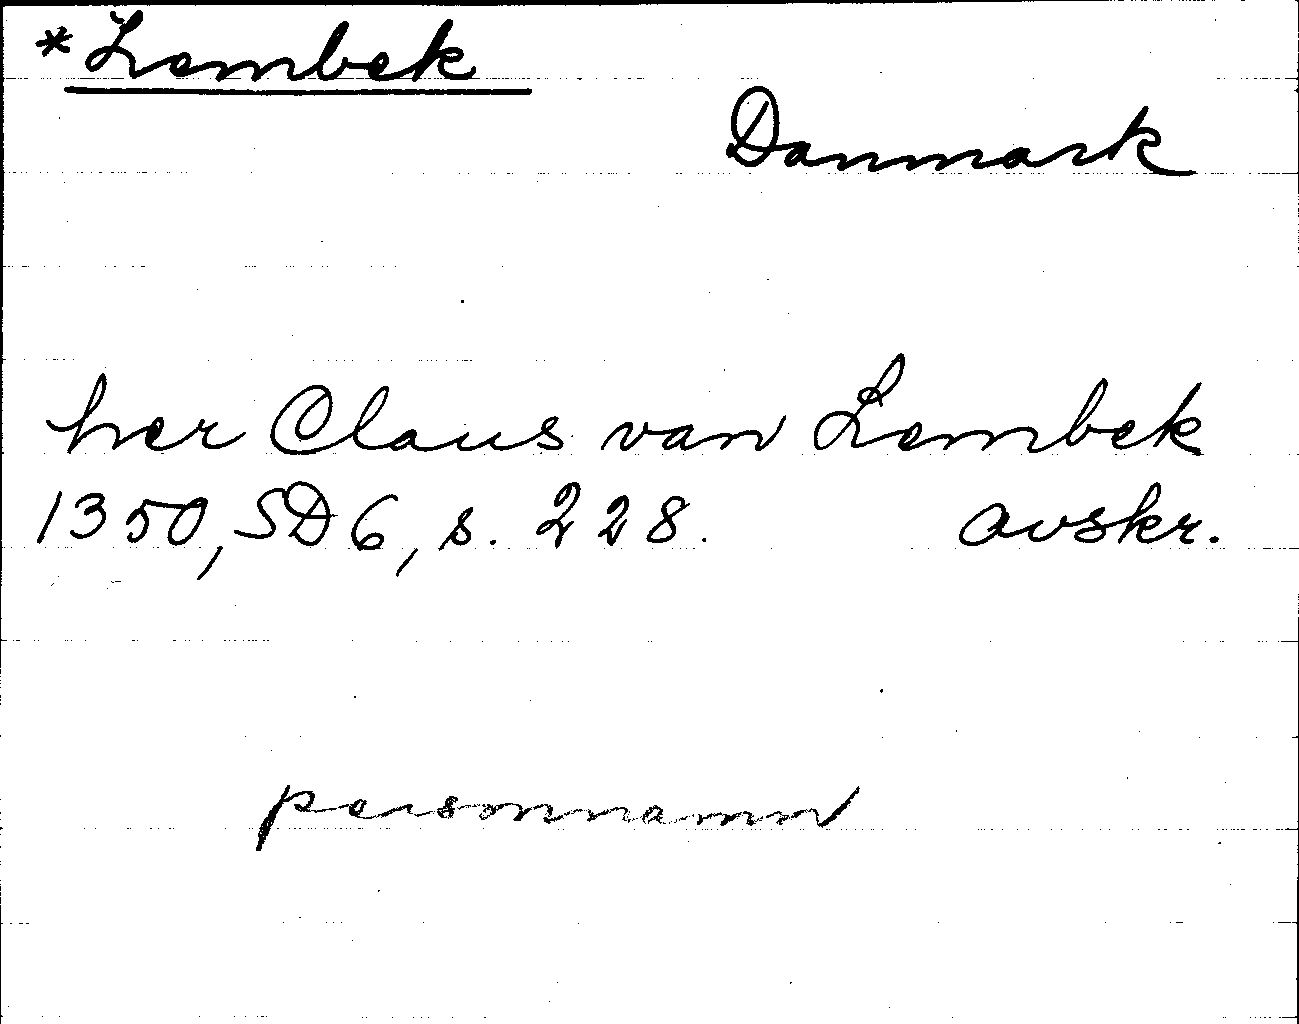 *Lembek
Danmark
her Claus van Lembek
1350, SD 6, s. 228. avskr.
personnamn